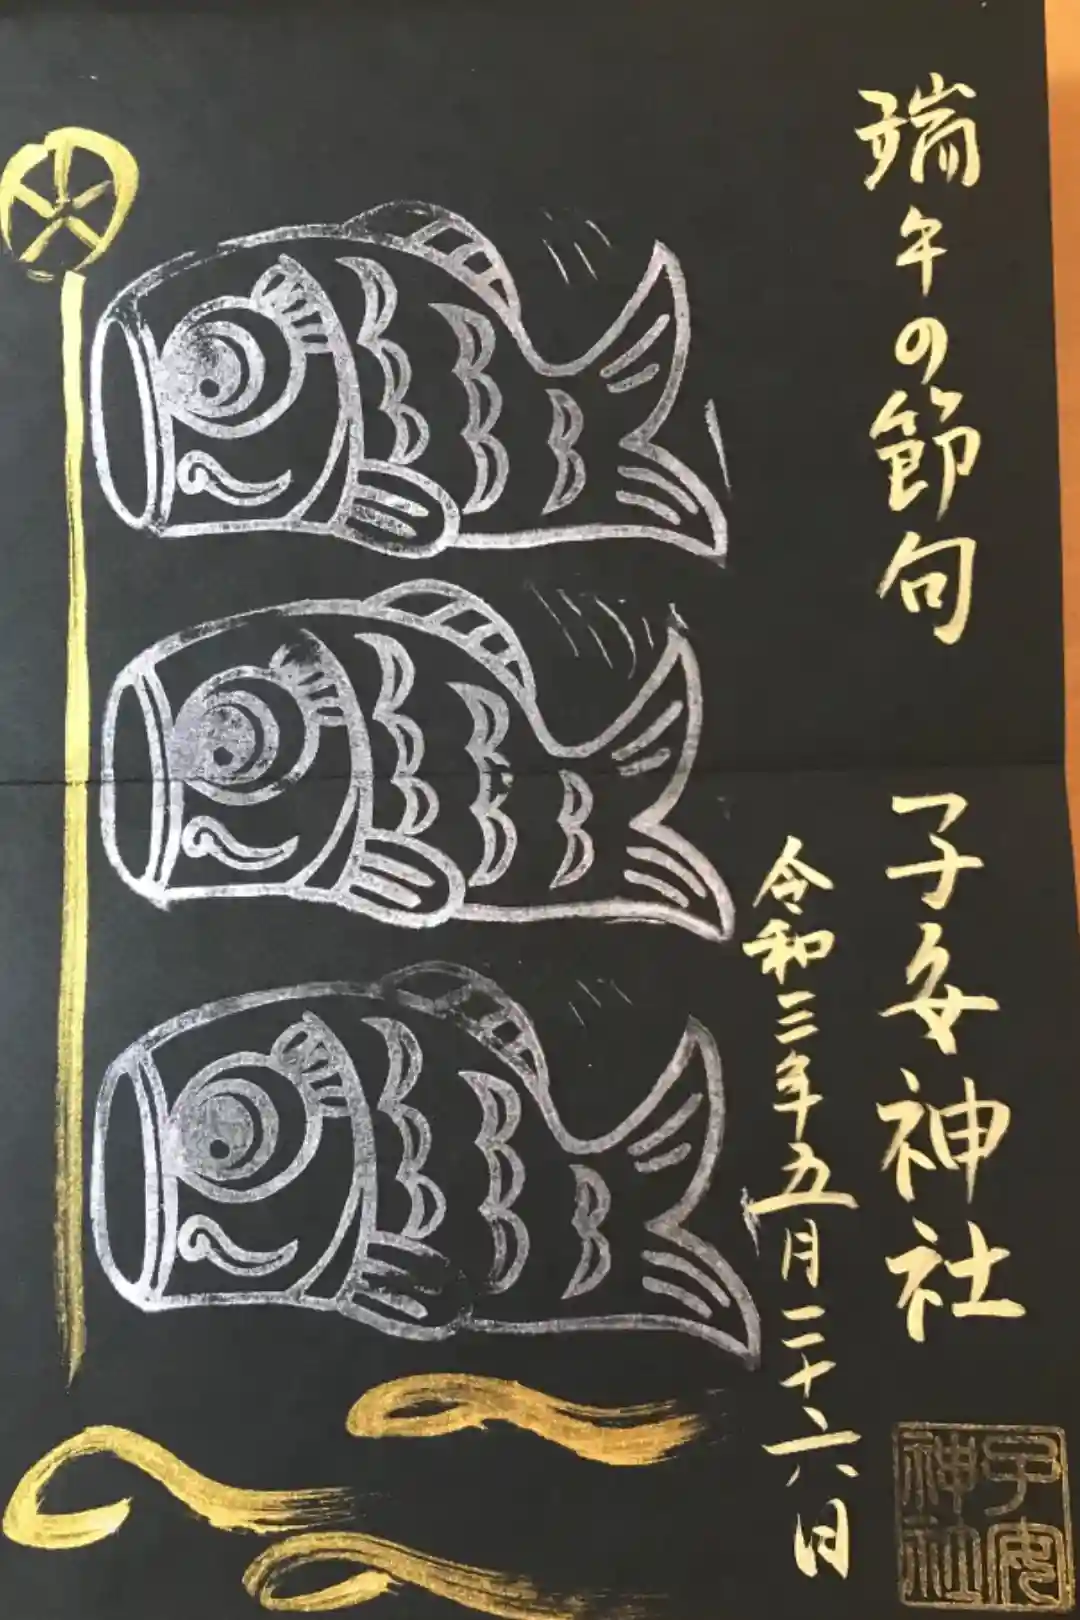 端午の節句
子安神社
令和三年五月二十六日
子安神社